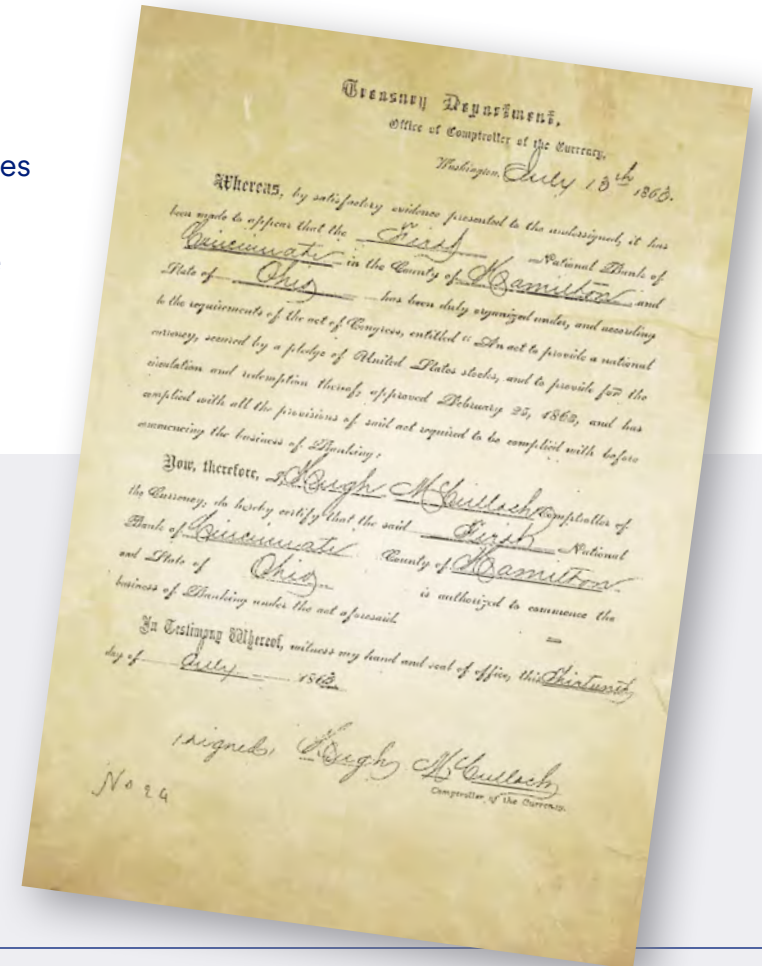 es
Treasury Department,
Office of Comptroller of the Currency,
Washington, July 13th 1863.
Whereas, by satisfactory evidence presented to the undersigned, it has
been made to appear that the First National Bank of
Cincinnati in the County of Hamilton and
State of Ohio has been duly organized under, and according
to the requirements of the act of Congress, entitled “An act to provide a national
currency, secured by a pledge of United States stocks, and to provide for the
circulation and redemption thereof, approved February 25, 1863, and has
complied with all the provisions of said act required to be complied with before
commencing the business of Banking;
Now, therefore, I, Hugh McCulloch, Comptroller of
the Currency, do hereby certify that the said First National
Bank of Cincinnati County of Hamilton
and State of Ohio is authorized to commence the
business of Banking under the act aforesaid.
In Testimony Whereof, witness my hand and seal of office, this Thirteenth
day of July 1863
signed, Hugh McCulloch
Comptroller of the Currency.
No 24